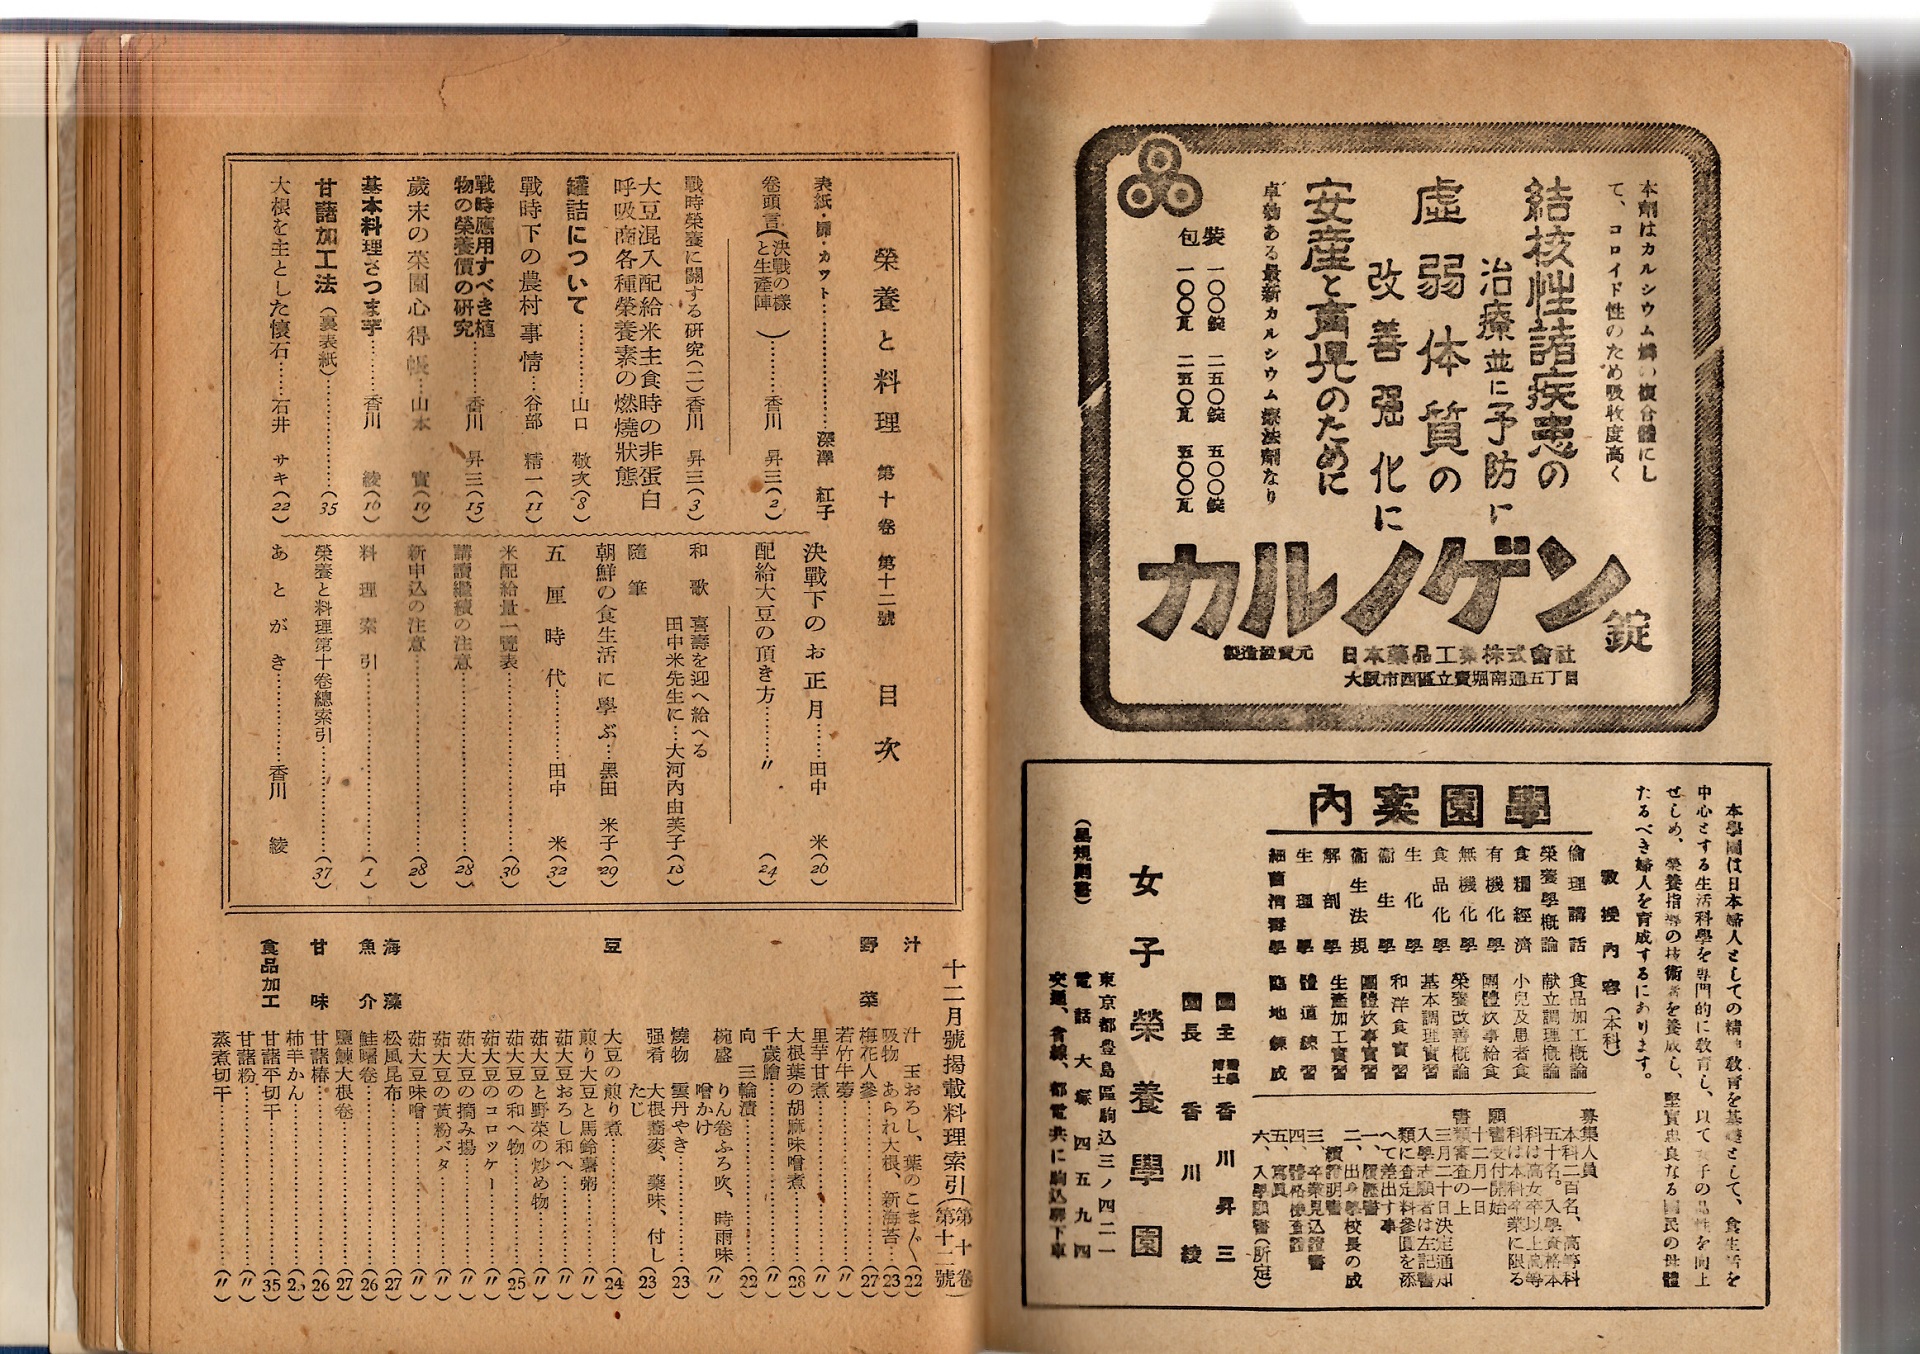 本劑はカルシウム燐の複合體にし
て、コロイド性のため吸收度高く
結核性諸疾患の
治療並に予防に
虛弱体質の
改善强化に
安産と育児のために
卓効ある最新カルシウム療法劑なり
包裝
一〇〇錠 二五〇錠 五〇〇錠
一〇〇瓦 二五〇瓦 五〇〇瓦
カルノゲン錠
製造發賣元 日本藥品工業株式會社
大阪市西區立賣堀南通五丁目
學園案內
本學園は日本婦人としての精神敎育を基礎として、食生活を
中心とする生活科學を專門的に敎育し、以て女子の品性を向上
せしめ、榮養指導の技術者を養成し、堅實忠良なる國民の母體
たるべき婦人を育成するにあります。
敎授內容(本科)
倫理講話
榮養學槪論
食糧經濟
有機化學
無機化學
食品化學
生化學
衞生學
衞生法規
解剖學
生理學
細菌消毒學
食品加工槪論
献立調理槪論
小兒及患者食
團體炊事給食
榮養改善槪論
基本調理實習
和洋食實習
團體炊事實習
生產加工實習
體道鍊習
臨地鍊成
募集人員
本科二百名、高等科
五十名。入學資格本
科は高女卒以上高等
科は本科卒業に限る
願書受付開始
十二月一日
書類審査の上
三月二十日決定通知
入學志願者は左記書
類に査定料參圓を添
へて差出す事
一、履歷書
二、出身學校長の成
績證明書
三、卒業見込證書
四、體格檢査書
五、寫眞
六、入學願書(所定)
園主 醫學博士 香川昇三
園長 香川綾
女子榮養學園
東京都豊島區駒込三ノ四二一
電話大塚四五九四
交通、省線、都電共に駒込驛下車
榮養と料理 第十卷 第十二號 目次
表紙・扉・カット……深澤 紅子
卷頭言(決戰の樣と生產陣)……香川 昇三(2)
戰時榮養に關する硏究(二)香川 昇三(3)
大豆混入配給米主食時の非蛋白
呼吸商各種榮養素の燃燒狀態
罐詰について……山口 敬次(8)
戰時下の農村事情…谷部 精一(11)
戰時應用すべき植
物の榮養價の硏究……香川 昇三(15)
歲末の菜園心得帳…山本 實(19)
基本料理さつま芋……香川 綾(16)
甘藷加工法(裏表紙)……(35)
大根を主とした懷石……石井 サキ(22)
決戰下のお正月……田中 米(26)
配給大豆の頂き方……〃(24)
和歌 喜壽を迎へ給へる
田中米先生に…大河內由芙子(18)
隨筆
朝鮮の食生活に學ぶ…黑田 米子(29)
五厘時代……田中 米(32)
米配給量一覽表……(36)
講讀繼續の注意……(28)
新申込の注意……(28)
料理索引……(1)
榮養と料理第十卷總索引……(37)
あとがき……香川 綾
十二月號揭載料理索引(第十卷第十二號)
汁
汁 玉おろし、葉のこまぐ(22)
吸物 あられ大根、新海苔…(23)
野菜
梅花人參……(27)
若竹牛蒡……(〃)
里芋甘煮……(〃)
大根葉の胡麻味噌煮……(28)
千歲膾……(〃)
向 三輪漬……(22)
椀盛 りん卷ふろ吹、時雨味
噌かけ……(〃)
燒物 雲丹やき……(23)
强肴 大根蕎麥、藥味、付し
たじ……(23)
豆
大豆の煎り煮……(24)
煎り大豆と馬鈴薯粥……(〃)
茹大豆おろし和へ……(〃)
茹大豆と野菜の炒め物……(〃)
茹大豆の和へ物……(25)
茹大豆のコロッケー……(〃)
茹大豆の摘み揚……(〃)
茹大豆の黃粉バタ……(〃)
茹大豆味噌……(〃)
海藻
松風昆布……(27)
魚介
鮭曙卷……(26)
鹽鰊大根卷……(27)
甘味
甘藷椿……(26)
柿羊かん……
食品加工
甘藷平切干……(35)
甘藷粉……(〃)
蒸煮切干……(〃)